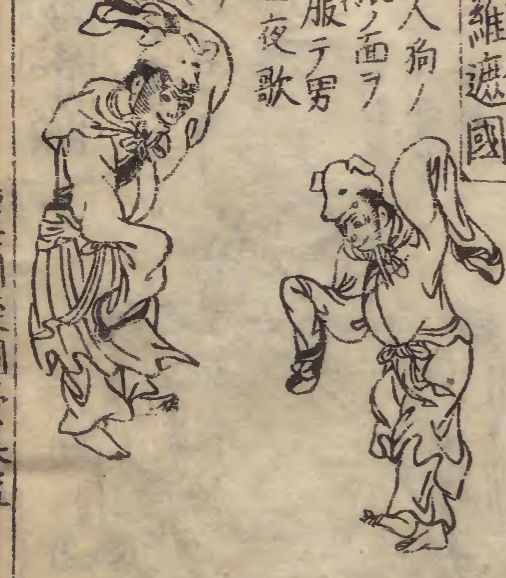 維遮國
人狗ノ
ノ面ヲ
服テ男
夜歌